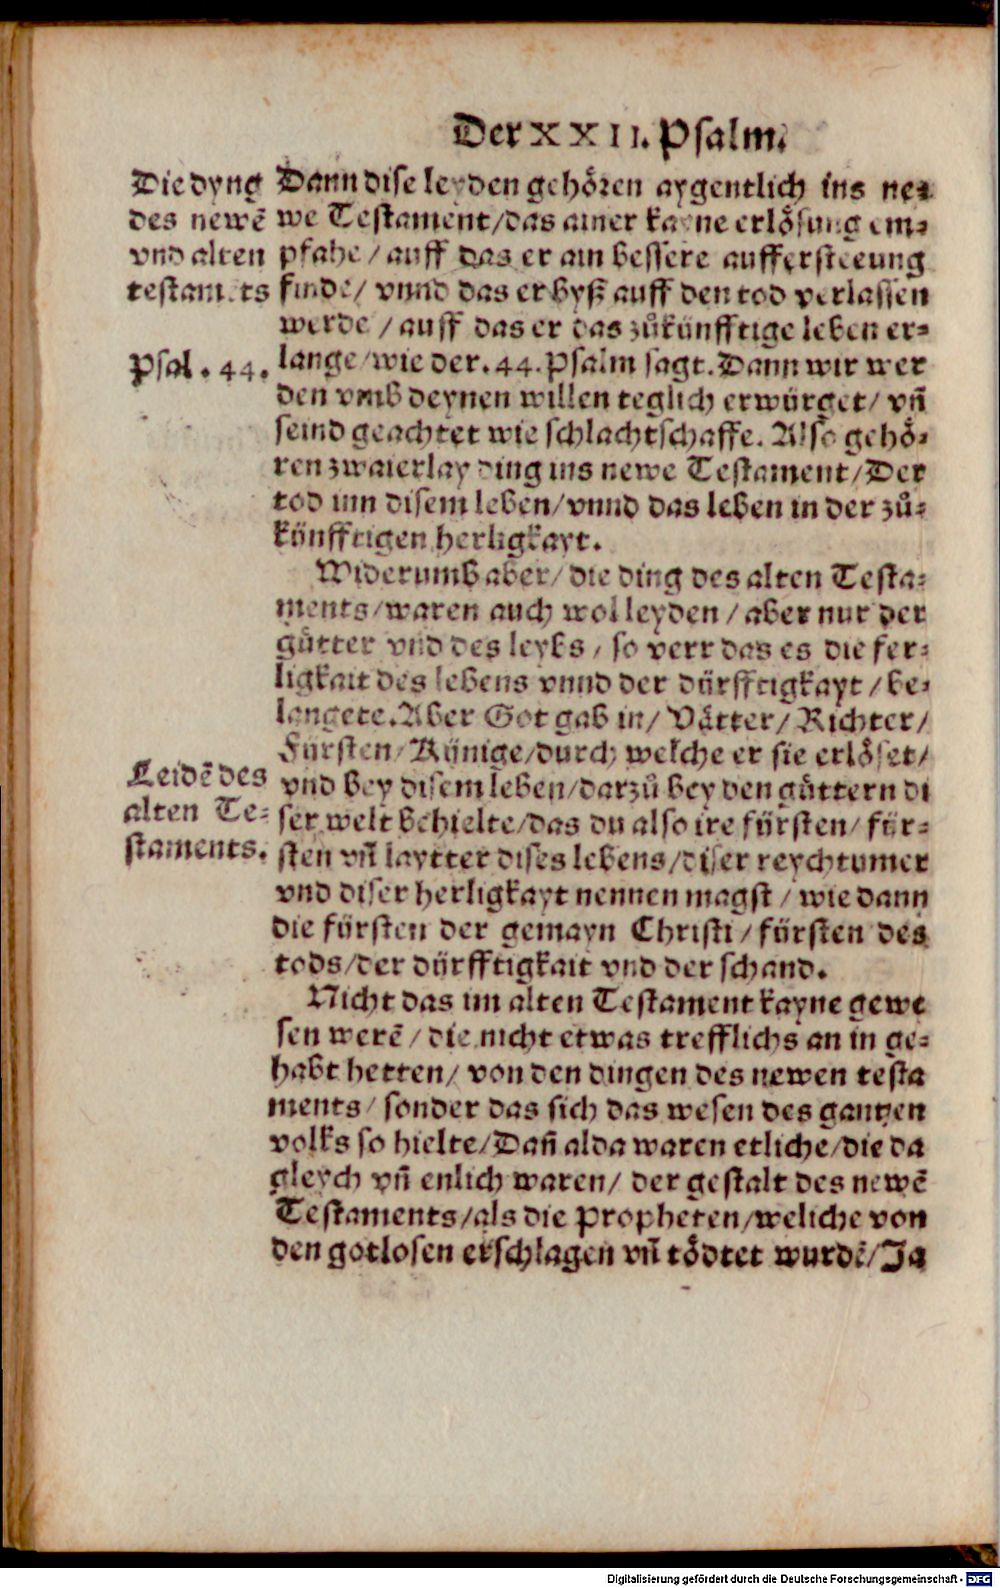 Der XXII. Psalm.
Die dyng
des newẽ
vnd alten
testaments
Psal. 44.
Dann dise leyden gehören aygentlich ins ne⸗
we Testament/das ainer kayne erlösung em⸗
pfahe/auff das er ain bessere auffersteeung
finde/ vnnd das er byß auff den tod verlassen
werde/auff das er das zůkünfftige leben er⸗
lange/wie der.44.Psalm sagt.Dann wir wer
den vmb deynen willen teglich erwürget/ vñ
seind geachtet wie schlachtschaffe. Also gehö⸗
ren zwaierlay ding ins newe Testament/Der
tod inn disem leben/vnnd das leben in der zů⸗
künfftigen herligkayt.
Widerumb aber/ die ding des alten Testa⸗
ments/waren auch wol leyden/aber nur der
gütter vnd des leybs/ so verr das es die fer⸗
ligkait des lebens vnnd der dürfftigkayt/be⸗
langete.Aber Got gab in/ Vätter/Richter/
Fürsten/Künige/durch welche er sie erlöset/
Leidẽ des
alten Te⸗
staments.
vnd bey disem leben/darzů bey den güttern di
ser welt behielte/das du also ire fürsten/ für⸗
sten vñ laytter dises lebens/diser reychtumer
vnd diser herligkayt nennen magst/ wie dann
die fürsten der gemayn Christi/fürsten des
tods/der dürfftigkait vnd der schand.
Nicht das im alten Testament kayne gewe
sen werẽ/die nicht etwas trefflichs an in ge⸗
habt hetten/ von den dingen des newen testa
ments/sonder das sich das wesen des gantzen
volks so hielte/Dañ alda waren etliche/die da
gleych vñ enlich waren/ der gestalt des newẽ
Testaments/als die Propheten/weliche von
den gotlosen erschlagen vñ tödtet wurdẽ/Ja
Digitalisierung gefördert durch die Deutsche Forschungsgemeinschaft - DFG